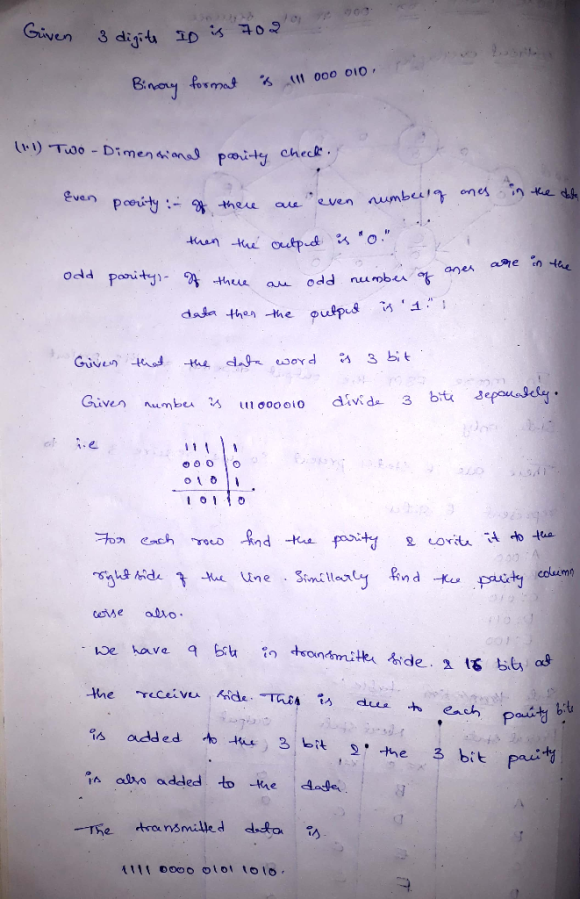 Given 3 digits ID is 702
Binary format is 111 000 010.
(1.1) Two-Dimensional parity check.
Even parity :- If there are even number of ones in the data
then the output is "0."
odd parity:- If there are odd number of ones are in the
data then the output is "1."
Given that the data word is 3 bit
Given number is 111000010 divide 3 bits separately.
i.e 111 | 1
000 | 0
010 | 1
101 | 0
For each row find the parity & write it to the
right side of the line. Simillarly find the parity column
wise also.
We have 9 bits in transmitter side. & 16 bits at
the receiver side. This is due to each parity bits
is added to the 3 bit & the 3 bit parity
is also added to the data.
The transmitted data is
1111 0000 0101 1010.